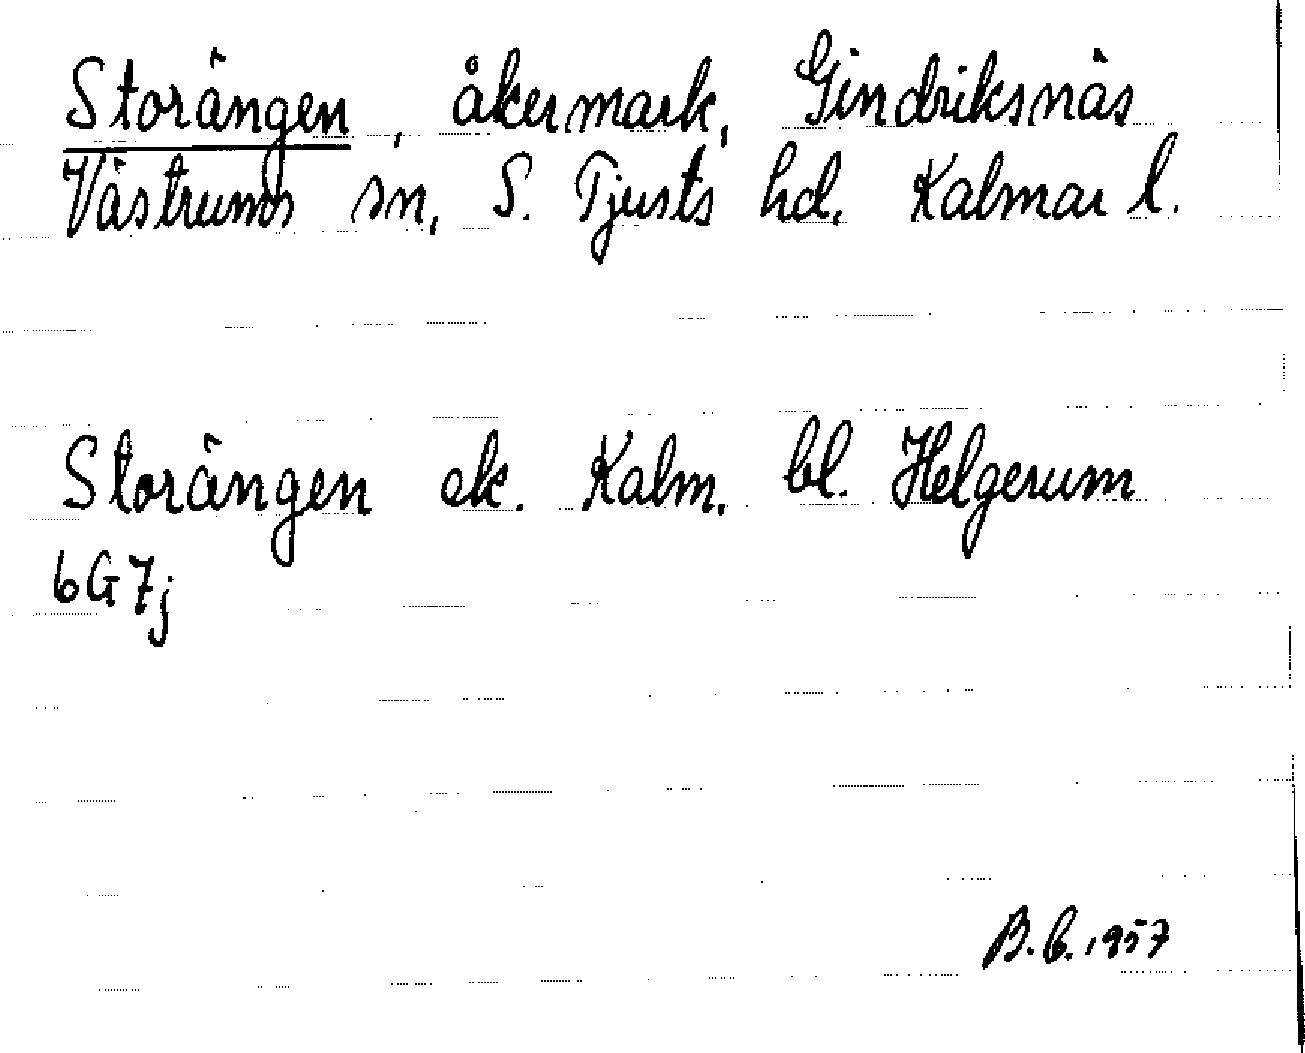 Storängen, åkermark, Gindriksnäs
Västrums sn, S. Tjusts hd, Kalmar l.
Storängen ek. Kalm. bl. Helgerum
6G7j
B.G. 1957